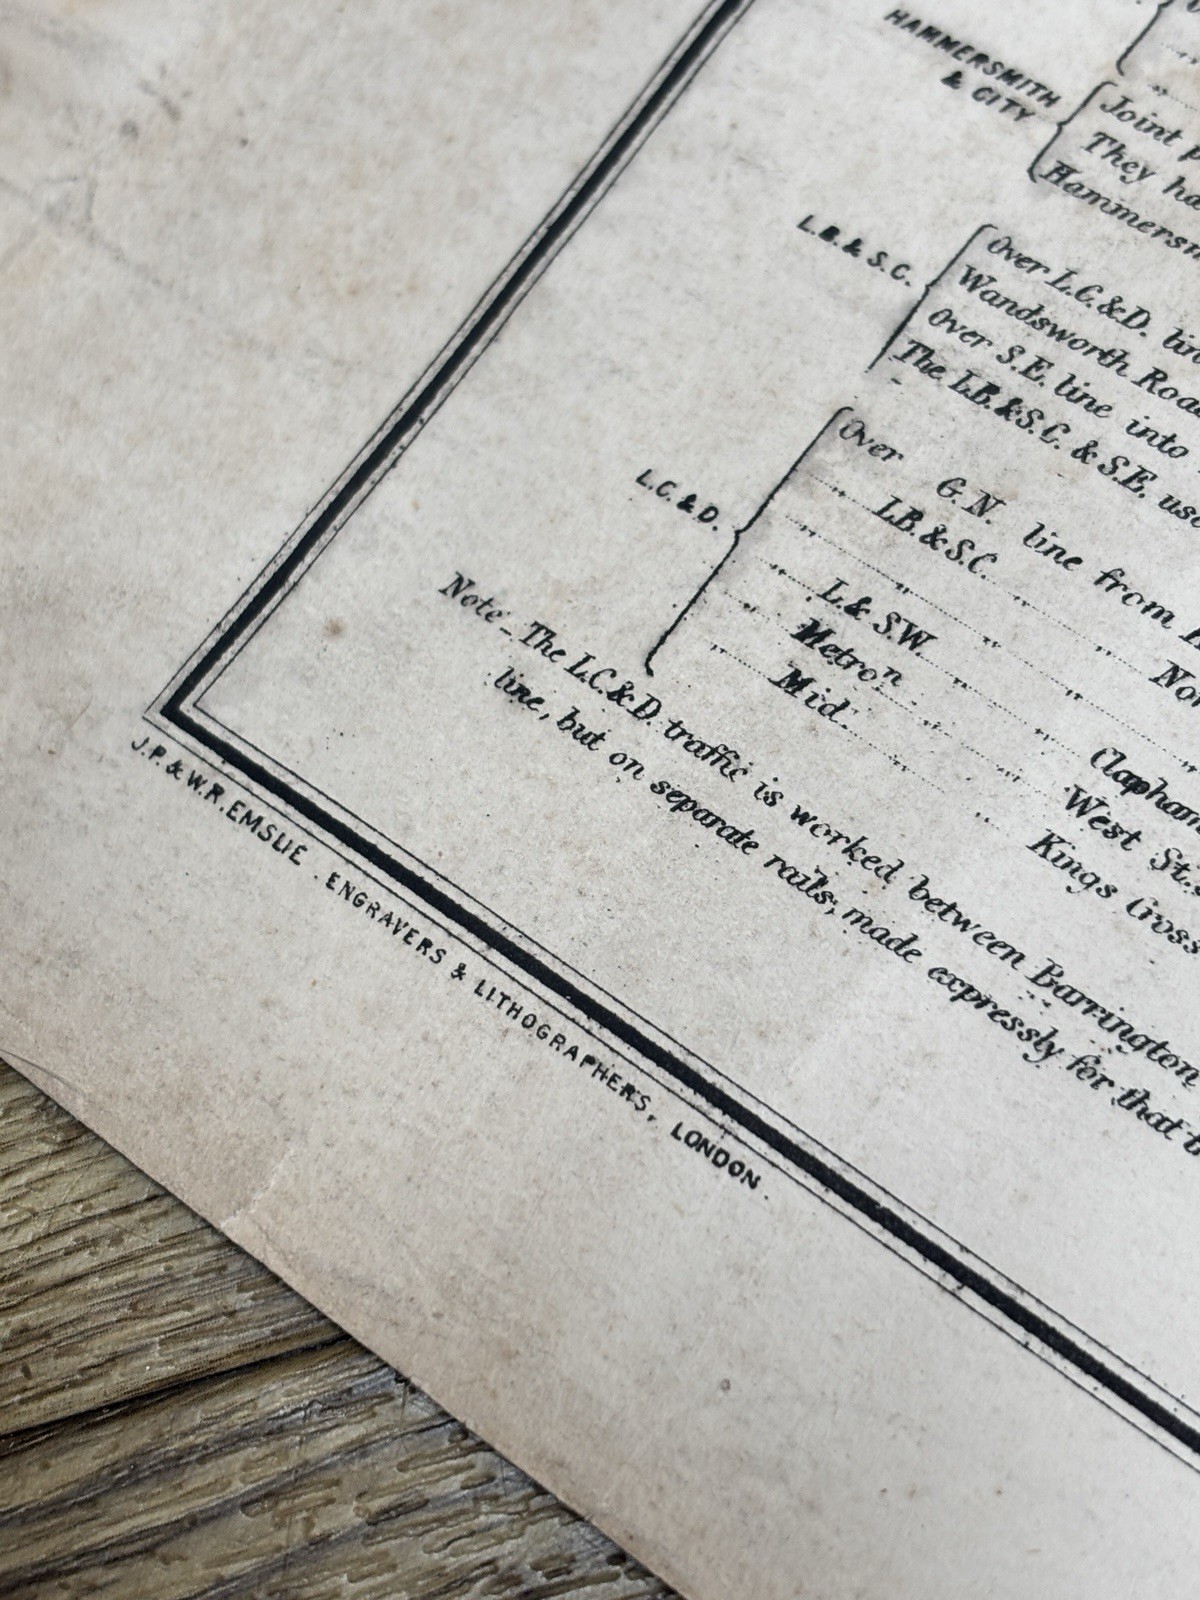 HAMMERSMITH
& CITY
Joint
They
Hammersm
L.B. & S.C.
Over L.C.&D. lin
Wandsworth Roa
Over S.E. line into
The L.B.&S.C. & S.E. use
L.C. & D.
Over G.N. line from
" L.B.&S.C. "
" L.& S.W. " "
" Metron " " Clapham
" Mid. " West St.
" Kings Cross
Note _ The L.C.&D. traffic is worked between Barrington
line, but on separate rails, made expressly for that
J.P. & W.R. EMSLIE . ENGRAVERS & LITHOGRAPHERS, LONDON.